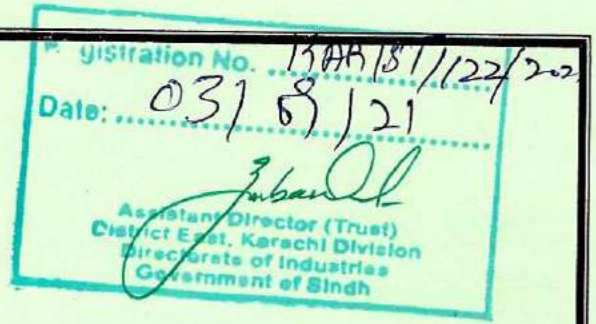 gistration No. KAR/ST/122/202
Date: 03/ /21
Assistant Director (Trust)
District East, Karachi Division
Directorate of Industries
Government of Sindh